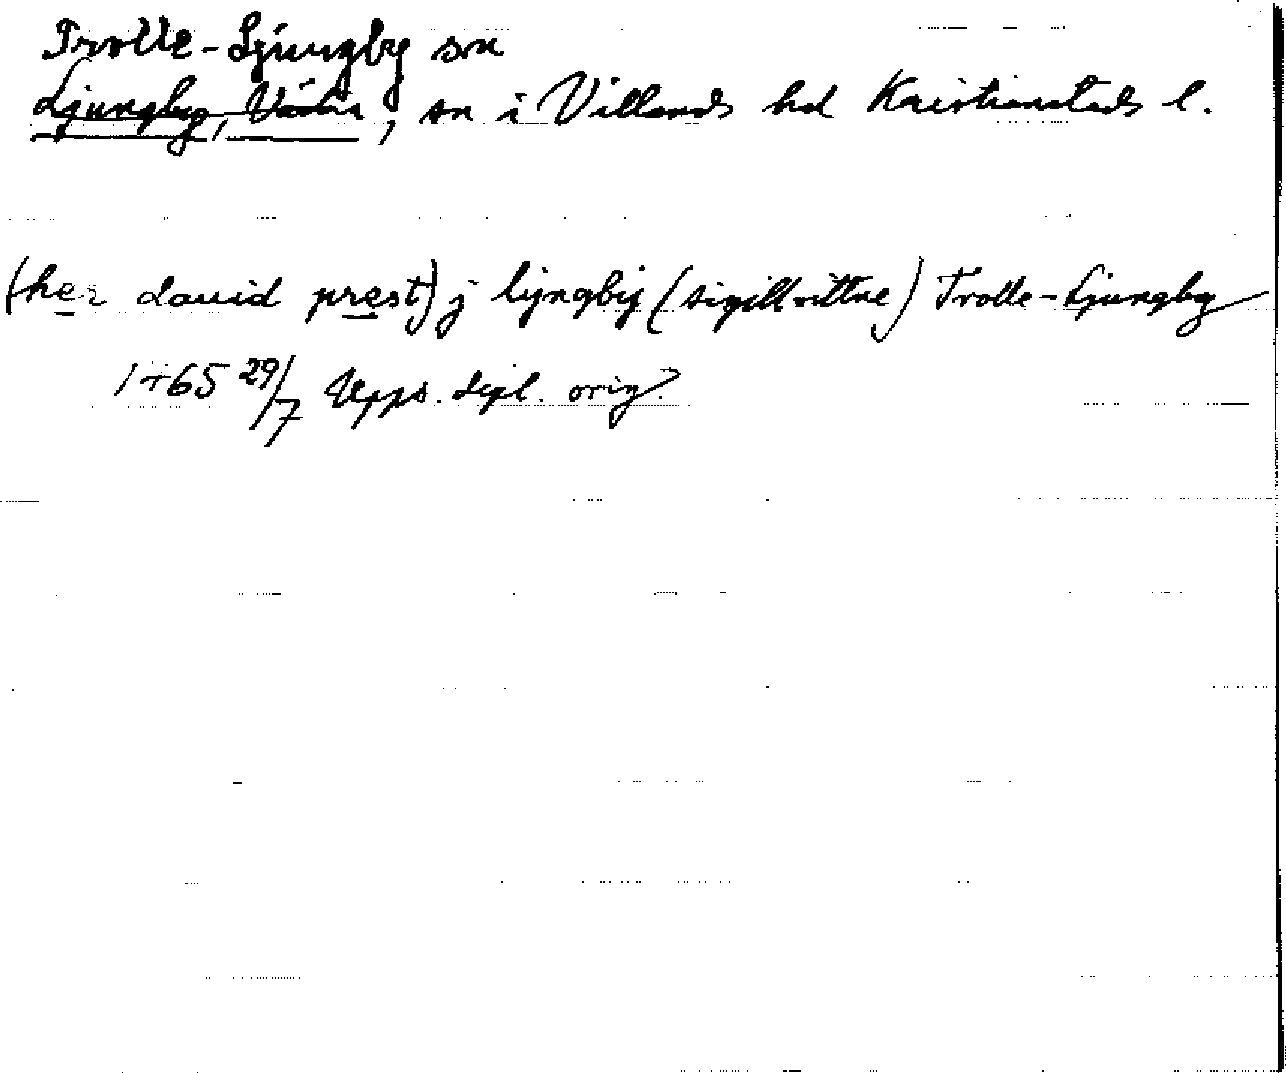 Trolle-Ljungby sn
Ljungby, Västra, sn i Villands hd Kristianstads l.
(her dauid prest) j lyngby (sigillvittne) Trolle-Ljungby
1465 29/7 Upps. dipl. orig.